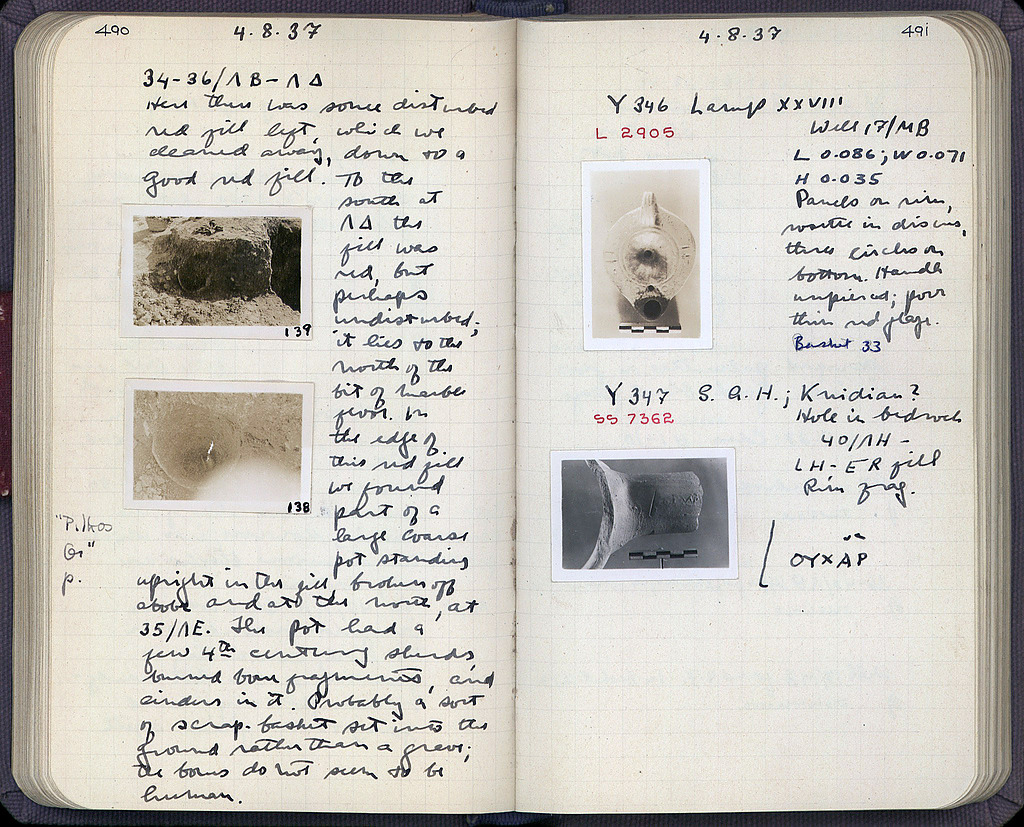 490
4.8.37
34-36/ΛB-ΛΔ
Here there was some disturbed
red fill left, which we
cleared away, down to a
good red fill. To the
south at
ΛΔ the
fill was
red, but
perhaps
undisturbed;
it lies to the
north of the
bit of marble
floor. In
the edge of
this red fill
we found
part of a
large coarse
pot standing
upright in the fill, broken off
above and at the north, at
35/ΛE. The pot had a
few 4th century sherds,
burned bone fragments, and
cinders in it. Probably a sort
of scrap-basket set into the
ground rather than a grave;
the bones do not seem to be
human.
139
138
"Pithos
p.
4.8.37
491
Y 346 Lamp XXVIII
L 2905
Well 17/MB
L 0.086; W 0.071
H 0.035
Panels on rim,
rosette in discus,
three circles on
bottom. Handle
unpierced; poor
thin red glaze.
Basket 33
Y 347 S.A.H.; Knidian?
SS 7362
Hole in bedrock
40/ΛH-
LH-ER fill
Rim frag.
ΟΥΧΑΡ